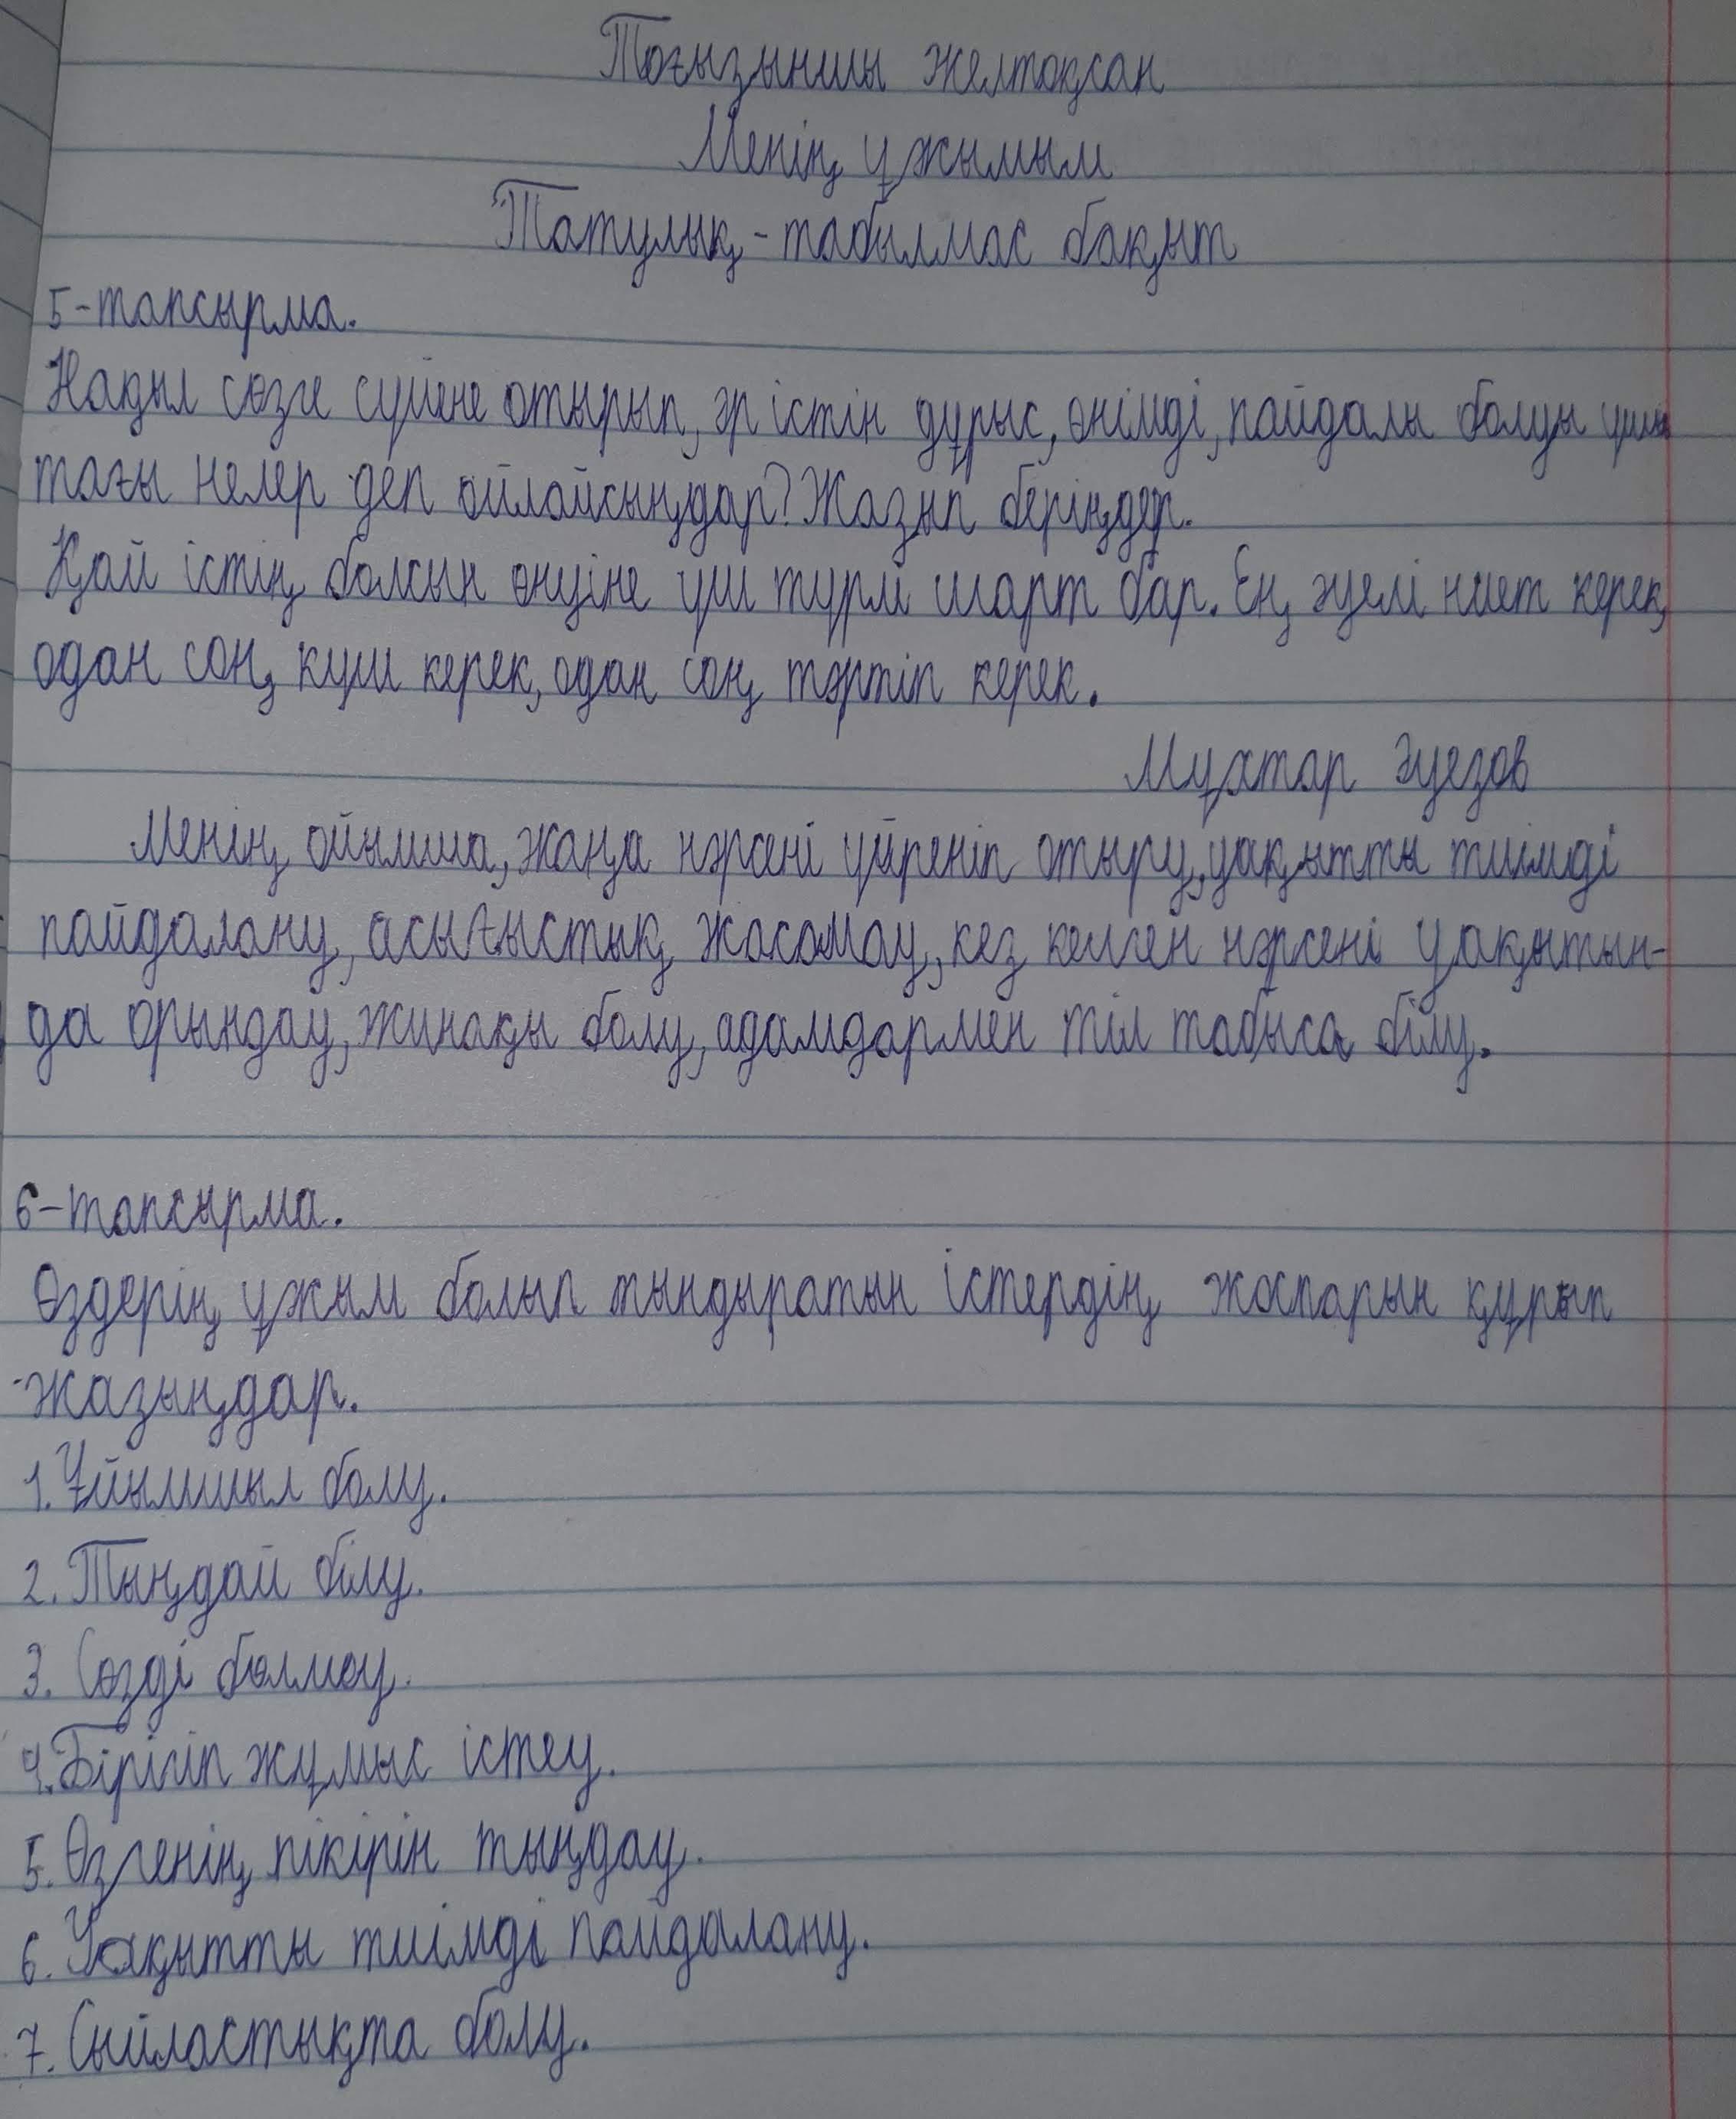 Тоғызыншы желтоқсан
Менің ұжымым
Татулық - табылмас бақыт
5-тапсырма.
Нақыл сөзге сүйене отырып, әр істің дұрыс, өнімді, пайдалы болуы үшін
тағы нелер деп ойлайсыңдар? Жазып беріңдер.
Қай істің болсын өнуіне үш түрлі шарт бар. Ең әуелі ниет керек,
одан соң күш керек, одан соң тәртіп керек.
Мұхтар Әуезов
Менің ойымша, жаңа нәрсені үйреніп отыру, уақытты тиімді
пайдалану, асығыстық жасамау, кез келген нәрсені уақытын-
да орындау, жинақы болу, адамдармен тіл табыса білу.
6-тапсырма.
Өздерің ұжым болып тындыратын істердің жоспарын құрып
жазыңдар.
1. Ұйымшыл болу.
2. Тыңдай білу.
3. Сөзді бөлмеу.
4. Бірігіп жұмыс істеу.
5. Өзгенің пікірін тыңдау.
6. Уақытты тиімді пайдалану.
7. Сыйластықта болу.